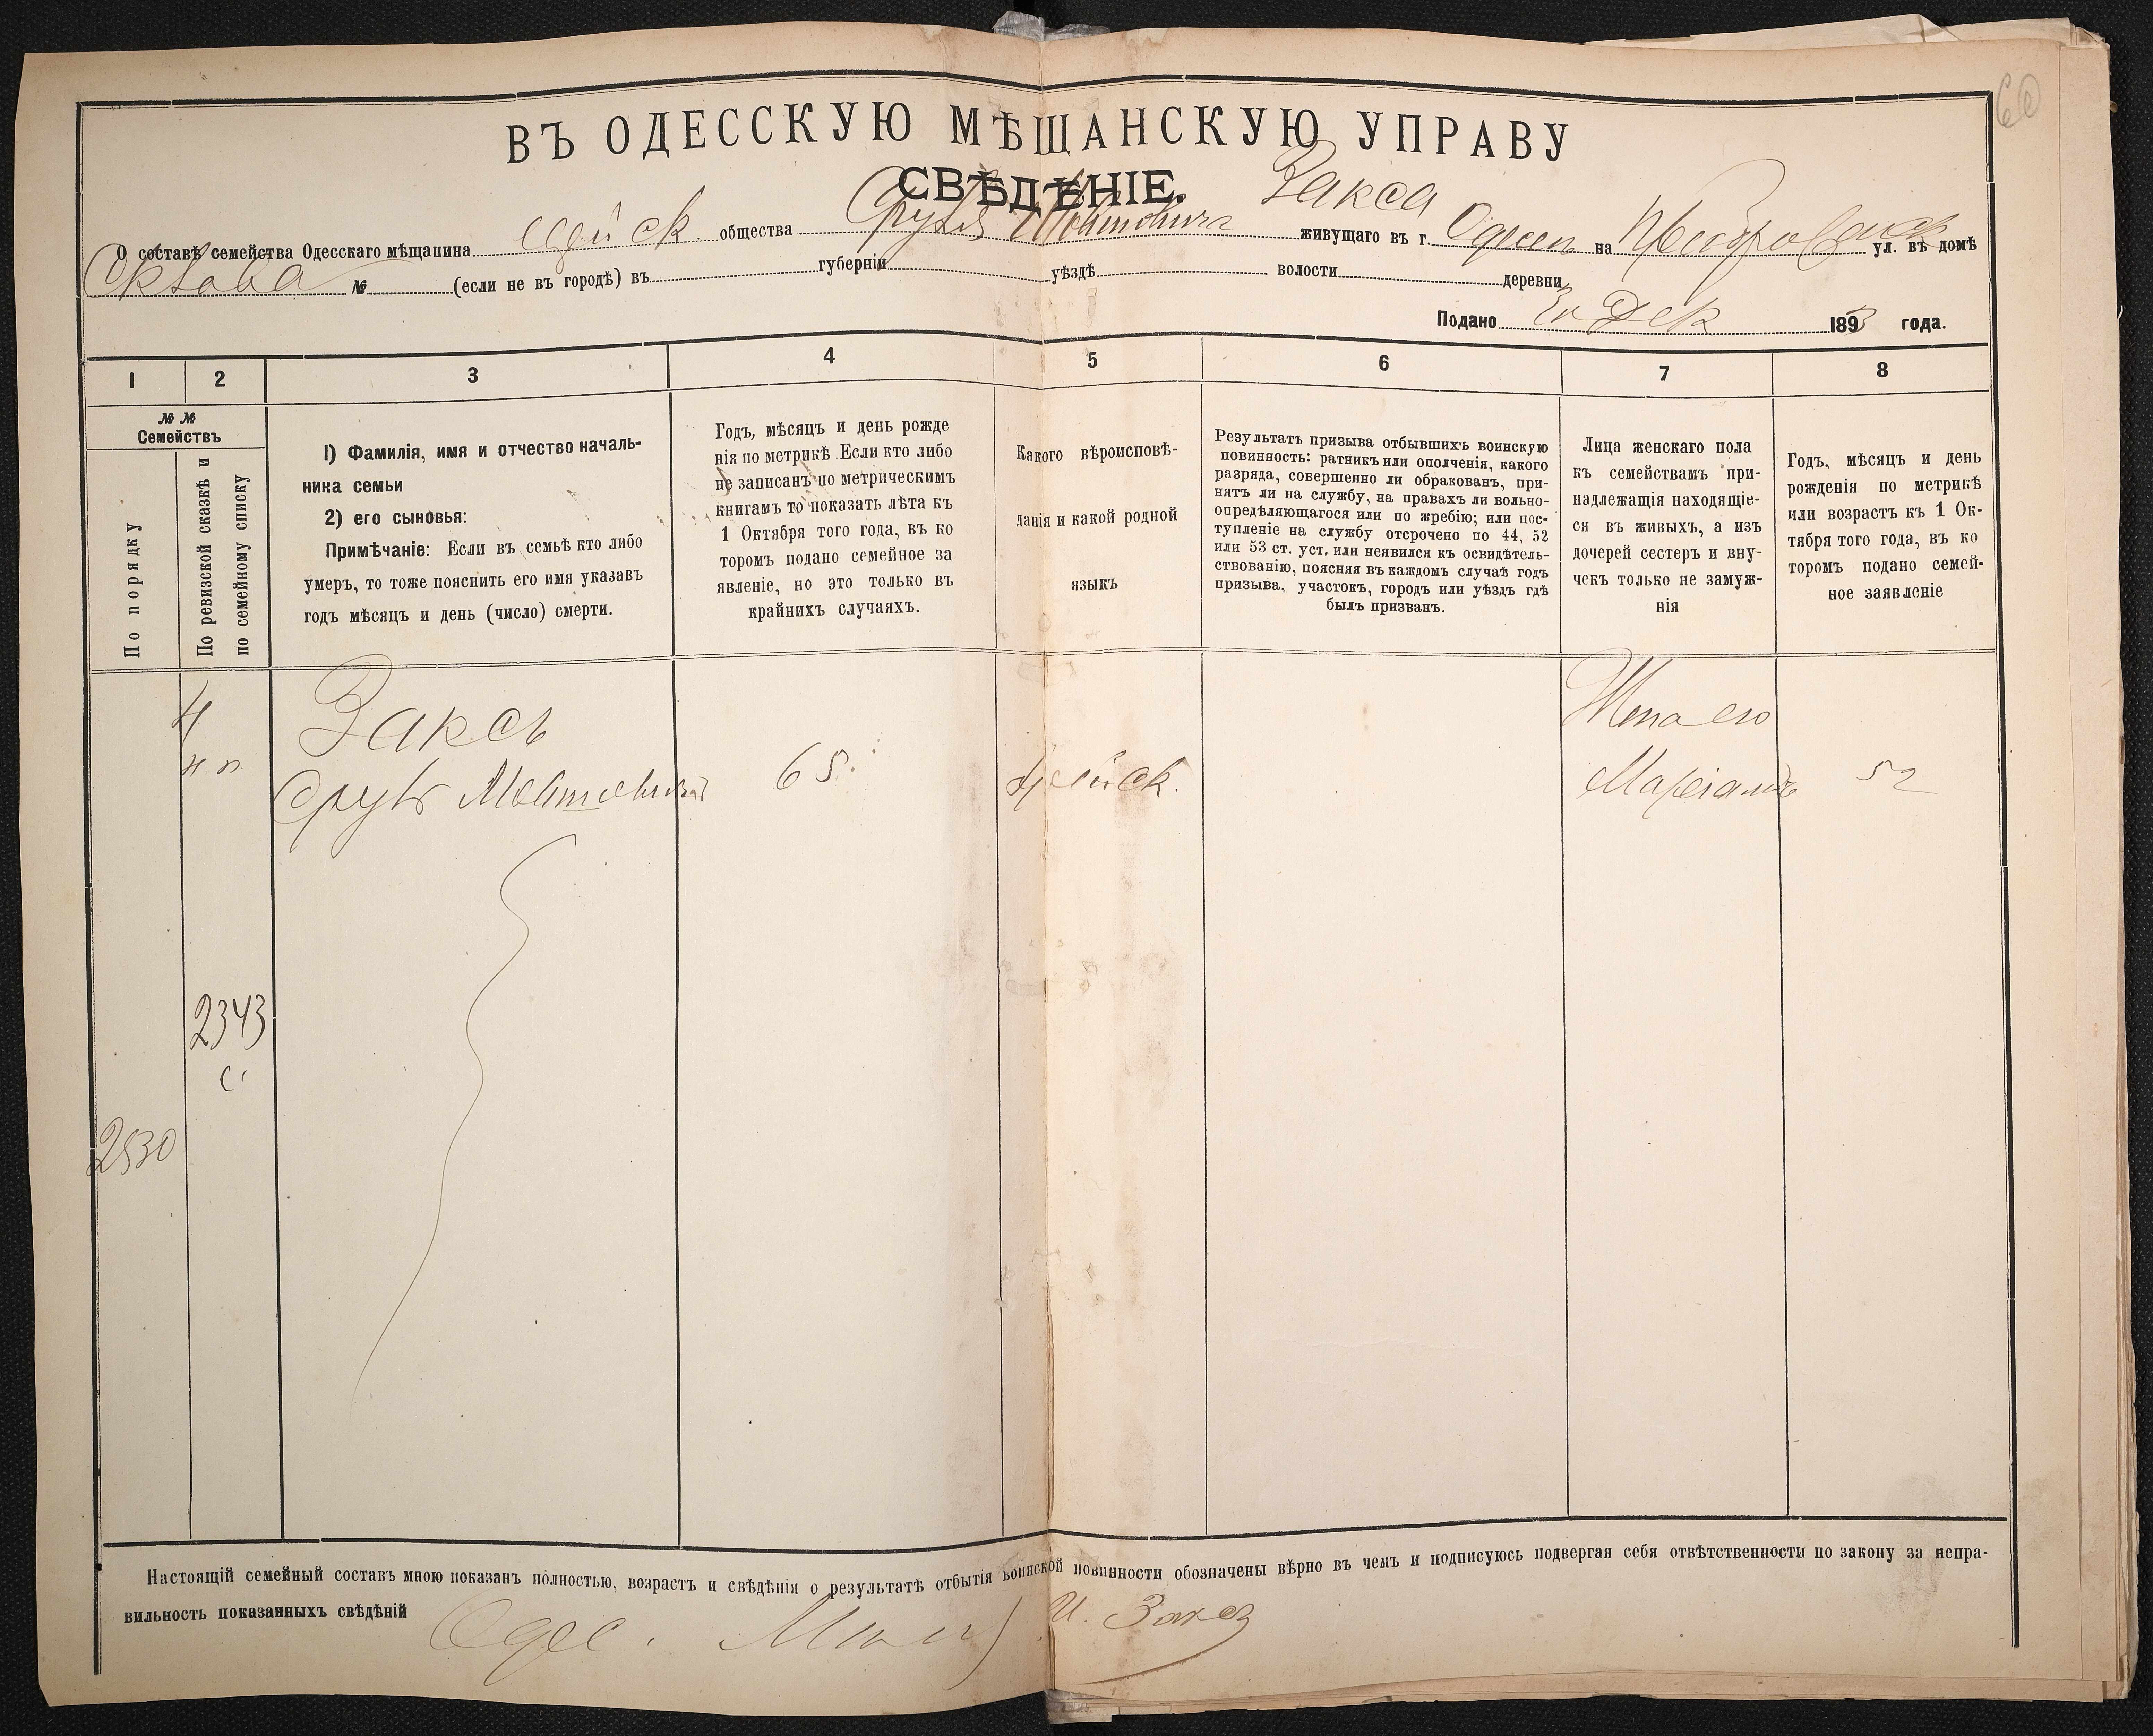 60
ВЪ ОДЕССКУЮ МѢЩАНСКУЮ УПРАВУ
СВѢДѢНІЕ.
О составѣ семейства Одесскаго мѣщанина общества Закса живущаго въ г. Одессѣ на ул. въ домѣ
№ (если не въ городѣ) въ губерніи уѣздѣ волости деревни
Подано Дек 1893 года.
1 2 3 4 5 6 7 8
№ № Семействъ
По порядку
По ревизской сказкѣ и по семейному списку
1) Фамилія, имя и отчество началь-
ника семьи
2) его сыновья:
Примѣчаніе: Если въ семьѣ кто либо
умеръ, то тоже пояснить его имя указавъ
годъ мѣсяцъ и день (число) смерти.
Годъ, мѣсяцъ и день рожде
нія по метрикѣ. Если кто либо
не записанъ по метрическимъ
книгамъ то показать лѣта къ
1 Октября того года, въ ко
торомъ подано семейное за
явленіе, но это только въ
крайнихъ случаяхъ.
Какого вѣроисповѣ-
данія и какой родной
языкъ
Результатъ призыва отбывшихъ воинскую
повинность: ратникъ или ополченія, какого
разряда, совершенно ли обракованъ, при-
нятъ ли на службу, на правахъ ли вольно-
опредѣляющагося или по жребію; или пос-
тупленіе на службу отсрочено по 44, 52
или 53 ст. уст, или неявился къ освидѣтель-
ствованію, поясняя въ каждомъ случаѣ годъ
призыва, участокъ, городъ или уѣздъ гдѣ
былъ призванъ.
Лица женскаго пола
къ семействамъ при-
надлежащія находящіе-
ся въ живыхъ, а изъ
дочерей сестеръ и вну-
чекъ только не замуж-
нія
Годъ, мѣсяцъ и день
рожденія по метрикѣ
или возрастъ къ 1 Ок-
тября того года, въ ко
торомъ подано семей-
ное заявленіе
Заксъ
65.
Жена его
52
2343
2530
Настоящій семейный составъ мною показанъ полностью, возрастъ и свѣдѣнія о результатѣ отбытія воинской повинности обозначены вѣрно въ чемъ и подписуюсь подвергая себя отвѣтственности по закону за непра-
вильность показанныхъ свѣдѣній
Одес. И. Заксъ